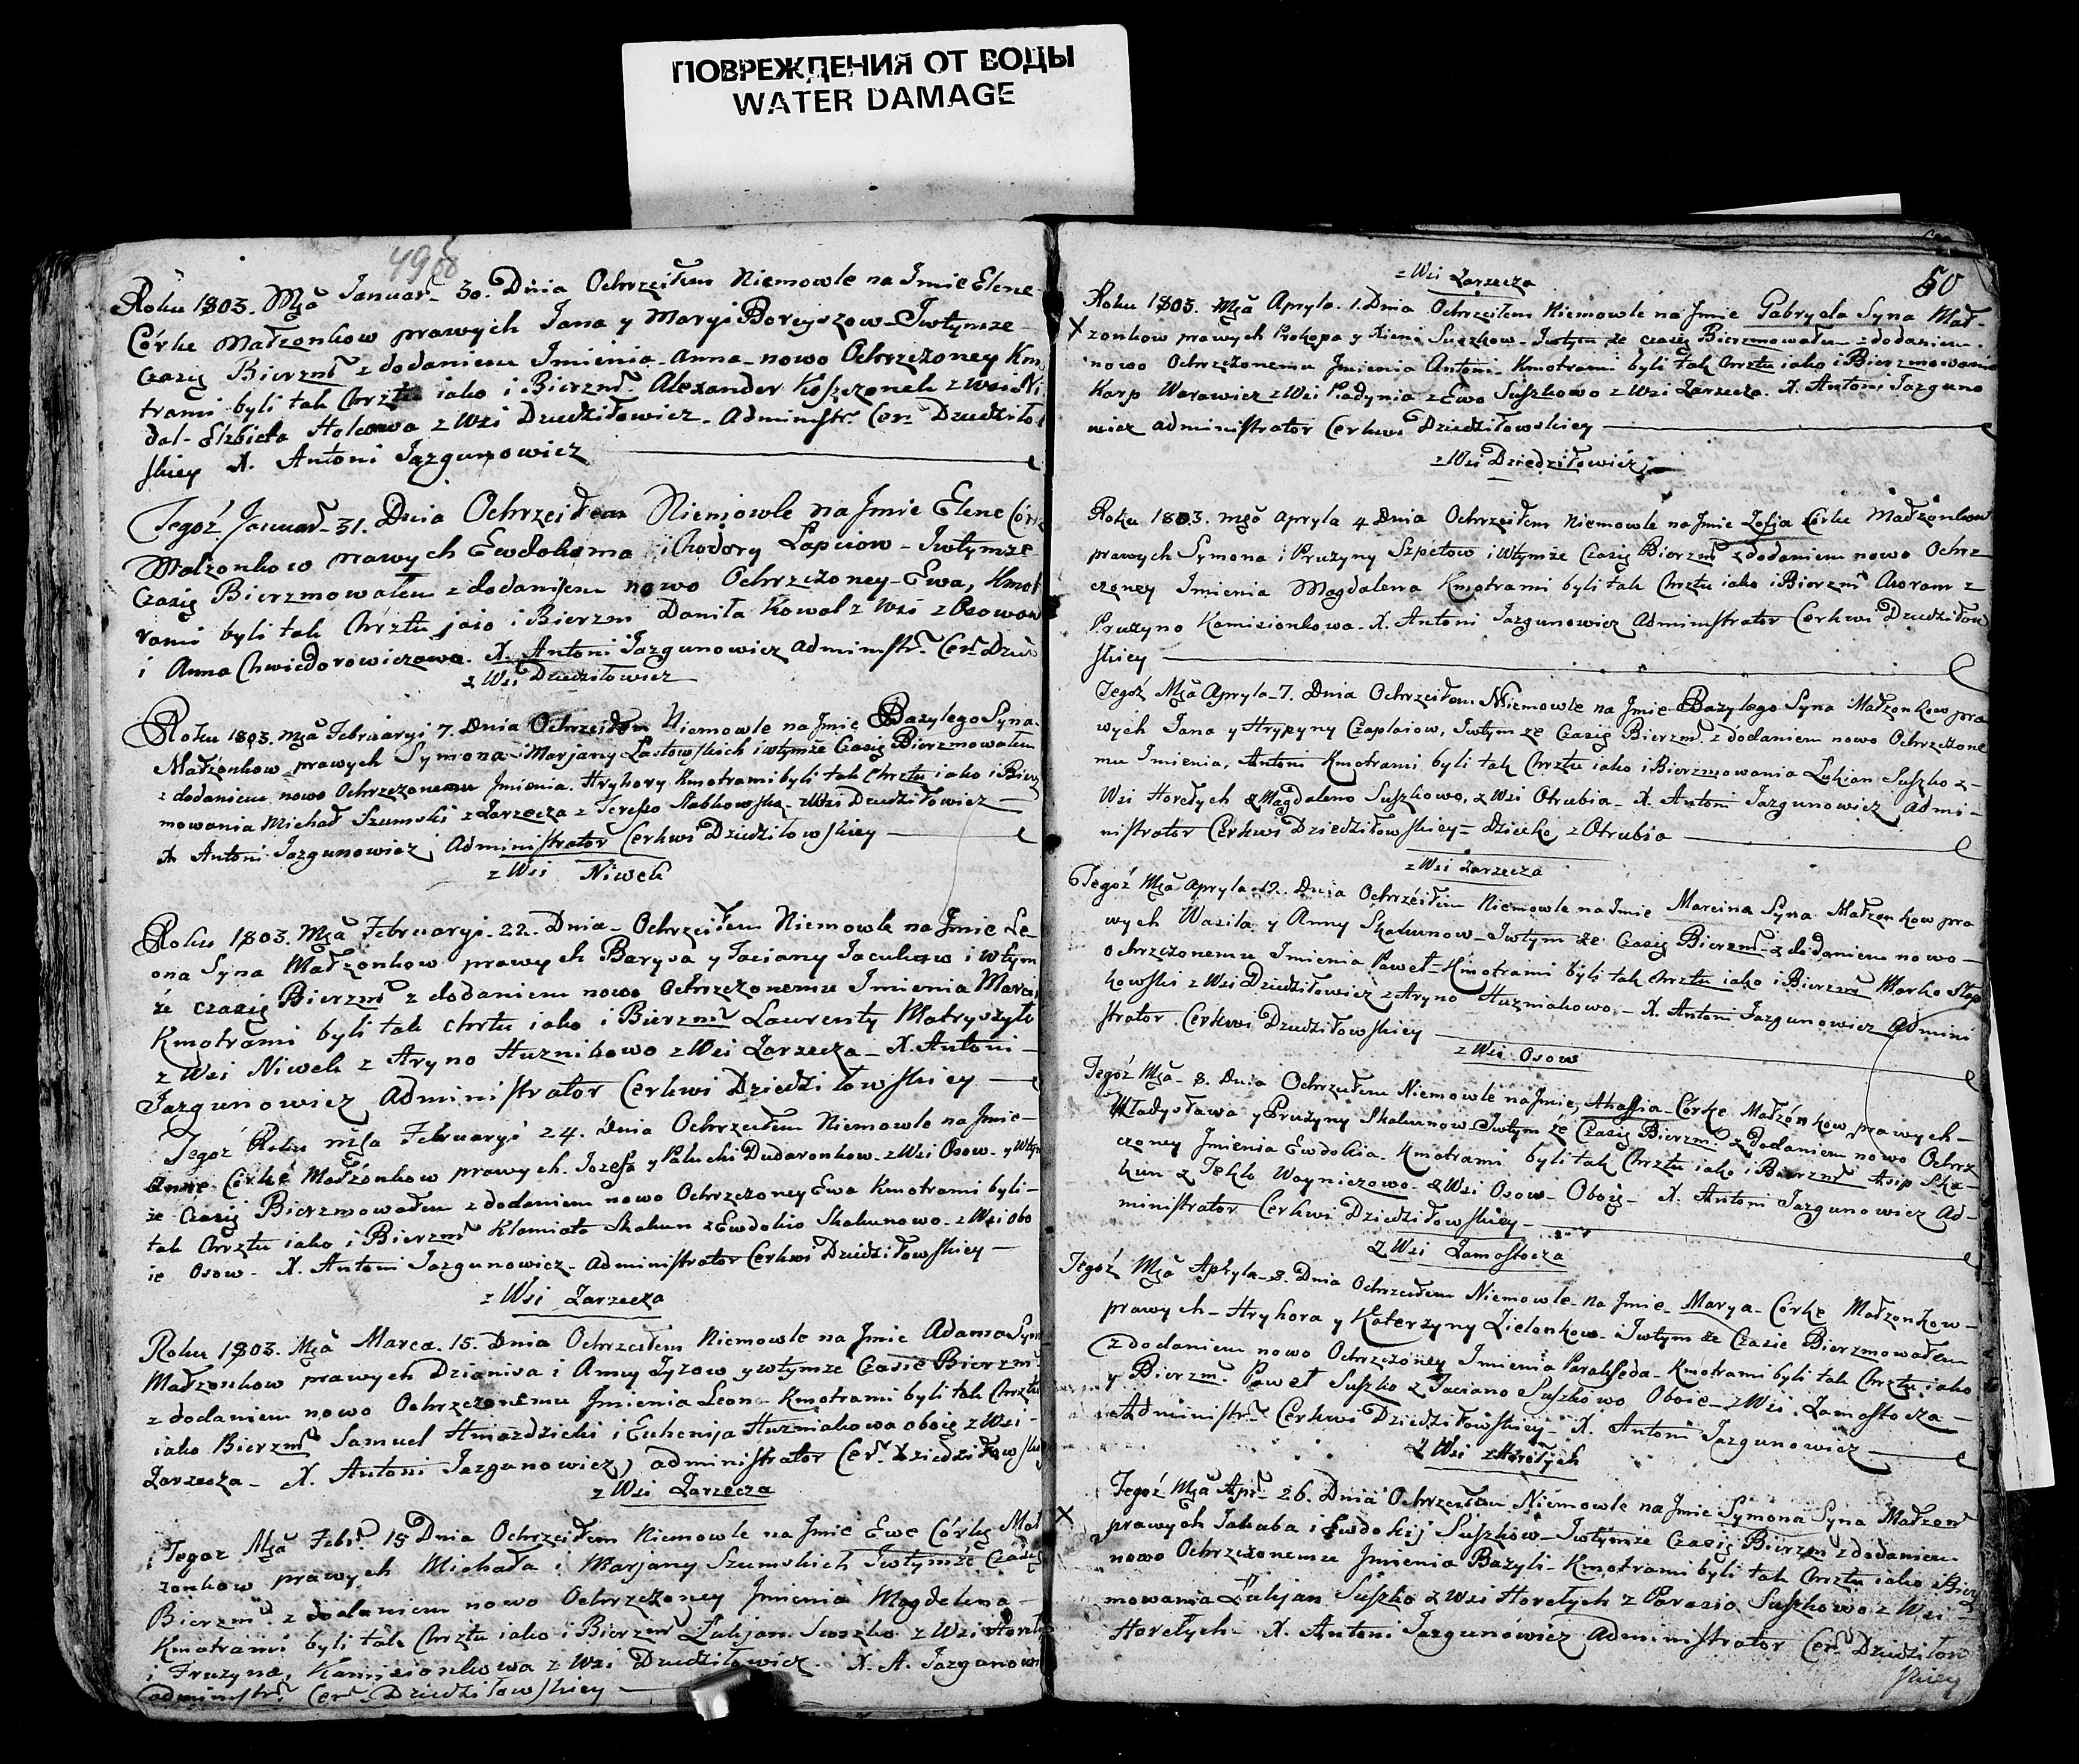 ПОВРЕЖДЕНИЯ ОТ ВОДЫ
WATER DAMAGE
49
Roku 1803. Mća Januar. 30. Dnia Ochrzciłem Niemowle na Jmie Elene
Córke Małżonkow prawych Jana y Maryi Borcyszow Jwtymze
Czasię Bierzm z dodaniem Jmienia Anna nowo Ochrzczoney Km
trami byli tak Chrztu iako i Bierzm. Alexander z wsi Ni
dal Elżbieta z Wsi Dziedziłowicz Administr. Cer. Dziedziło
skiey X. Antoni Jazgunowicz
Tegoż Januar 31. Dnia Ochrzciłem Niemowle na Jmie Elene Córk
Małzonkow prawych Ewdokoma i Chodory Łapciow Jwtymze
Czasię Bierzmowałem z dodaniem nowo Ochrzczoney Ewa, Kmot
rami byli tak Chrztu jako i Bierzm Daniła Kowal z Wsi z Osowow
i Anna Chwiedorowiczowa. X. Antoni Jazgunowicz administr. Cer. Dzie
z Wsi Dziedziłowicz
Roku 1803. mća Februaryi 7. Dnia Ochrzciłem Niemowle na Jmie Bazylego Syna
Małżonkow prawych Symona i Marjany Łastowskich iwtymże Czasię Bierzmowałem
z dodaniem nowo Ochrzczonemu Jmienia. Hryhory Kmotrami byli tak Chrztu iako i Bierz
mowania Michał Szumski z Zarzecza z Teresso Słabkowska z Wsi Dziedziłowicz
X Antoni Jazgunowicz Administrator Cerkwi Dziedziłowskiey
z Wsi Niwek
Roku 1803. Mća Februaryi. 22. Dnia Ochrzciłem Niemowle na Jmie Le
ona Syna Małżonkow prawych Barysa y Taciany Jacukow i wtym
że czasię Bierzm z dodaniem nowo Ochrzczonemu Jmienia Marci
Kmotrami byli tak chrtu iako i Bierzm Laurenty Matryszyło
z Wsi Niwek z Aryno Huznikowo z Wsi Zarzecza X. Antoni
Jazgunowicz Administrator Cerkwi Dziedziłowskiey
Tegoż Roku mća Februaryi 24. Dnia Ochrzciłem Niemowle na Jmie
Anne Córke Małżónkow prawych. Jozefa y Pałucki Dudaronkow z Wsi Osow y Wtym
że Czasię Bierzmowałem z dodaniem nowo Ochrzczoney Ewa Kmotrami byli
tak Chrztu iako i Bierzm Kłamiato Skakun z Ewdokio Skakunowo z Wsi obo
ie Osow X. Antoni Jazgunowicz Administrator Cerkwi Dziedziłowskiey
z Wsi Zarzecza
Roku 1803. Mća Marca. 15. Dnia Ochrzciłem Niemowle na Jmie Adama Syn
Małżonkow prawych Dzianisa i Anny Łyzow y wtymże Czasie Bierzm
z dodaniem nowo Ochrzczonemu Jmienia Leon Kmotrami byli tak Chrztu
iako Bierzm Samuel Hniazdzicki i Euhenija Huzniakowa oboię z Wsi
Zarzecza X. Antoni Jazgunowicz administrator Cer. Dziedziłowski
z Wsi Zarzecza
Tegoz Mća Febr. 15 Dnia Ochrzciłem Niemowle na Jmie Ewe Córkę Mał
zonkow prawych Michała i Marjany Szumskich Jwtymże Czasię
Bierzm z dodaniem nowo Ochrzczoney Jmienia Magdelena
Kmotrami byli tak Chrztu iako i Bierzm Łukjan Suszko z Wsi Horeły
i Pruzyna, Kamisionkowa z Wsi Dziedziłowicz. X. A. Jazgunowi
administr. Cer. Dziedziłowskiey
50
z Wsi Zarzecza
Roku 1803. Mća Apryla. 1. Dnia Ochrzciłem Niemowle na Jmie Gabryela Syna Mał
X zonkow prawych Prokopa y Xieni Suszkow Jwtym że czasię Bierzmowałem z dodaniem
nowo Ochrzczonemu Jmienia Antoni Kmotrami byli tak Chrztu iako i Bierzmowania
Karp Warawicz z Wsi z Ewo Suszkowo z Wsi Zarzecza. X. Antoni Jazguno
wicz administrator Cerkwi Dziedziłowskiey
z Wsi Dziedziłowicz
Roku 1803. mća Apryla 4 Dnia Ochrzciłem Niemowle na Jmie Zofia Córke Małżónkow
prawych Symona i Pruzyny Szpetow i Wtymże Czasię Bierzm z dodaniem nowo Ochrz
czoney Jmienia Magdalena Kmotrami byli tak Chrztu iako i Bierzm Awram z
Pruzyno Kamisionkowa. X. Antoni Jazgunowicz Administrator Cerkwi Dziedziłow
skiey
Tegoż Mća Apryla 7. Dnia Ochrzciłem Niemowle na Jmie Bazylego Syna Małżonkow pra
wych Jana y Hrypyny Czaplaiow, Jwtym że Czasię Bierzm. z dodaniem nowo Ochrzczone
mu Jmienia, Antoni Kmotrami byli tak Chrztu iako i Bierzmowania Łukian Suszko z
Wsi Horełych z Magdaleno Suszkowo, z Wsi Otrubia X. Antoni Jazgunowicz Admi
nistrator Cerkwi Dziedziłowskiey dziecko z Otrubia
z Wsi Zarzecza
Tegoż Mća Apryla 12. Dnia Ochrzciłem Niemowle na Jmie Marcina Syna Małżonkow pra
wych Wasila y Anny Skakunow Jwtym że Czasię Bierzm z dodaniem nowo
ochrzczonemu Jmienia Paweł Kmotrami byli tak Chrztu iako i Bierzm Marko Słap
kowski z Wsi Dziedziłowicz z Aryno Huzniakowo. X. Antoni Jazgunowicz Admini
strator Cerkwi Dziedziłowskiey
z Wsi Osow
Tegoż Mća 8. Dnia Ochrzciłem Niemowle na Jmie, Ahassia Córkę Małżónkow prawych
Władysława y Pruzyny Skakunow Jwtym że Czasię Bierzm. z dodaniem nowo Ochrz
czoney Jmienia Ewdokia. Kmotrami byli tak Chrztu iako i Bierzm Asip Ska
kun z Tekło Wayniczowo z Wsi Osow Oboię X. Antoni Jazgunowicz Ad
ministrator Cerkwi Dziedziłowskiey
Z Wsi Zamostocza
Tegoż Mća Apryla 8. Dnia Ochrzciłem Niemowle na Jmie Marya Córkę Małzonkow
prawych Hryhora y Katerzyny Zielonkow Jwtym że Czasie Bierzmowałem
z dodaniem nowo Ochrzczoney Jmienia Parakseda Kmotrami byli tak Chrztu iako
y Bierzm. Paweł Suszko z Taciano Suszkowo Oboie z Wsi Zamostocza
Administr. Cerkwi Dziedziłowskiey X. Antoni Jazgunowicz
Z Wsi Horełych
Tegoż Mća Apr. 26. Dnia Ochrzciłem Niemowle na Jmie Symona Syna Małzon
X prawych Jakuba i Ewdokij Suszkow Jwtymże Czasię Bierzm z dodaniem
nowo Ochrzczonemu Jmienia Bazyli Kmotrami byli tak Chrztu iako i Bierz
mowania Łukjan Suszko z Wsi Horełych z Parasio Suszkowo z Wsi
Horełych X. Antoni Jazgunowicz Administrator Cer. Dziedziłow
skiey